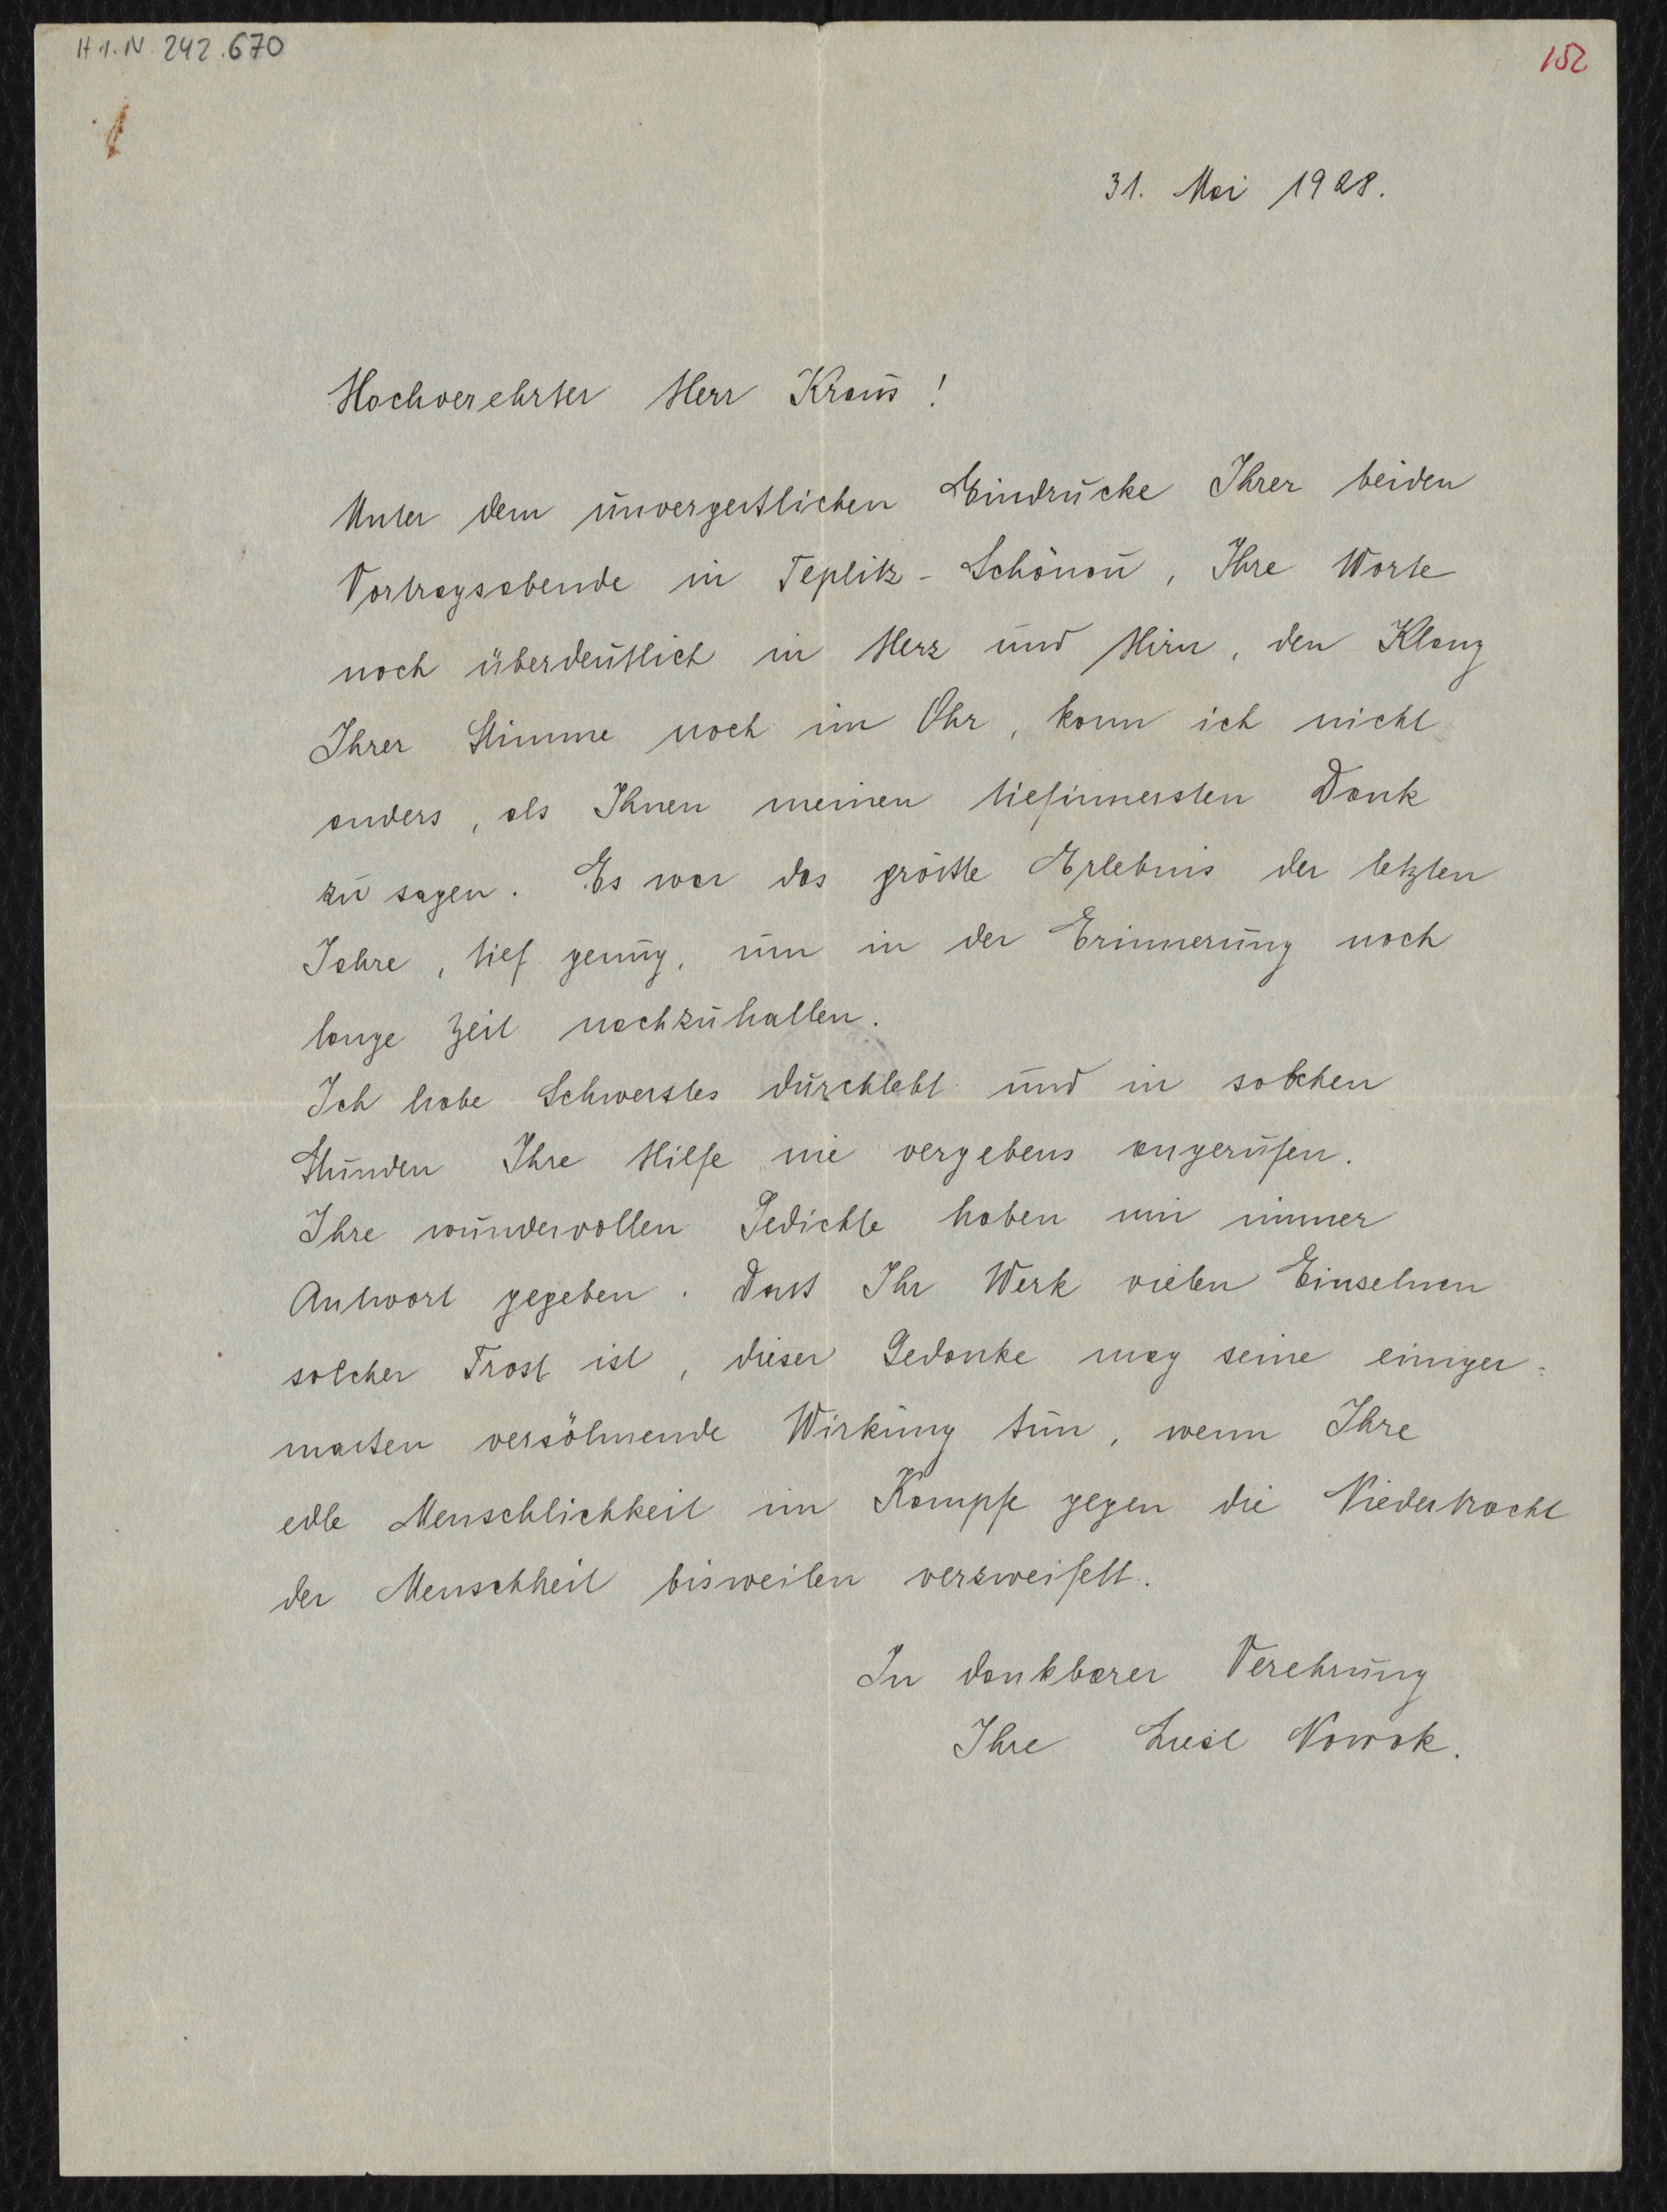 H.I.N. 242.670
152
31. Mai 1928.
Hochverehrter Herr Kraus!
Unter dem unvergeßlichen Eindrucke Ihrer beiden
Vortragsabende in Teplitz-Schönau, Ihre Worte
noch überdeutlich in Herz und Hirn, den Klang
Ihrer Stimme noch im Ohr, kann ich nicht
anders, als Ihnen meinen tiefinnersten Dank
zu sagen. Es war das größte Erlebnis der letzten
Jahre, tief genug, um in der Erinnerung noch
lange Zeit nachzuhallen.
Ich habe Schwerstes durchlebt und in solchen
Stunden Ihre Hilfe nie vergebens angerufen.
Ihre wundervollen Gedichte haben mir immer
Antwort gegeben. Dass Ihr Werk vielen Einzelnen
solcher Trost ist, dieser Gedanke mag seine einiger=
maßen versöhnende Wirkung tun, wenn Ihre
edle Menschlichkeit im Kampfe gegen die Niedertracht
der Menschheit bisweilen verzweifelt.
In dankbarer Verehrung
Ihre Liesl Nowak.